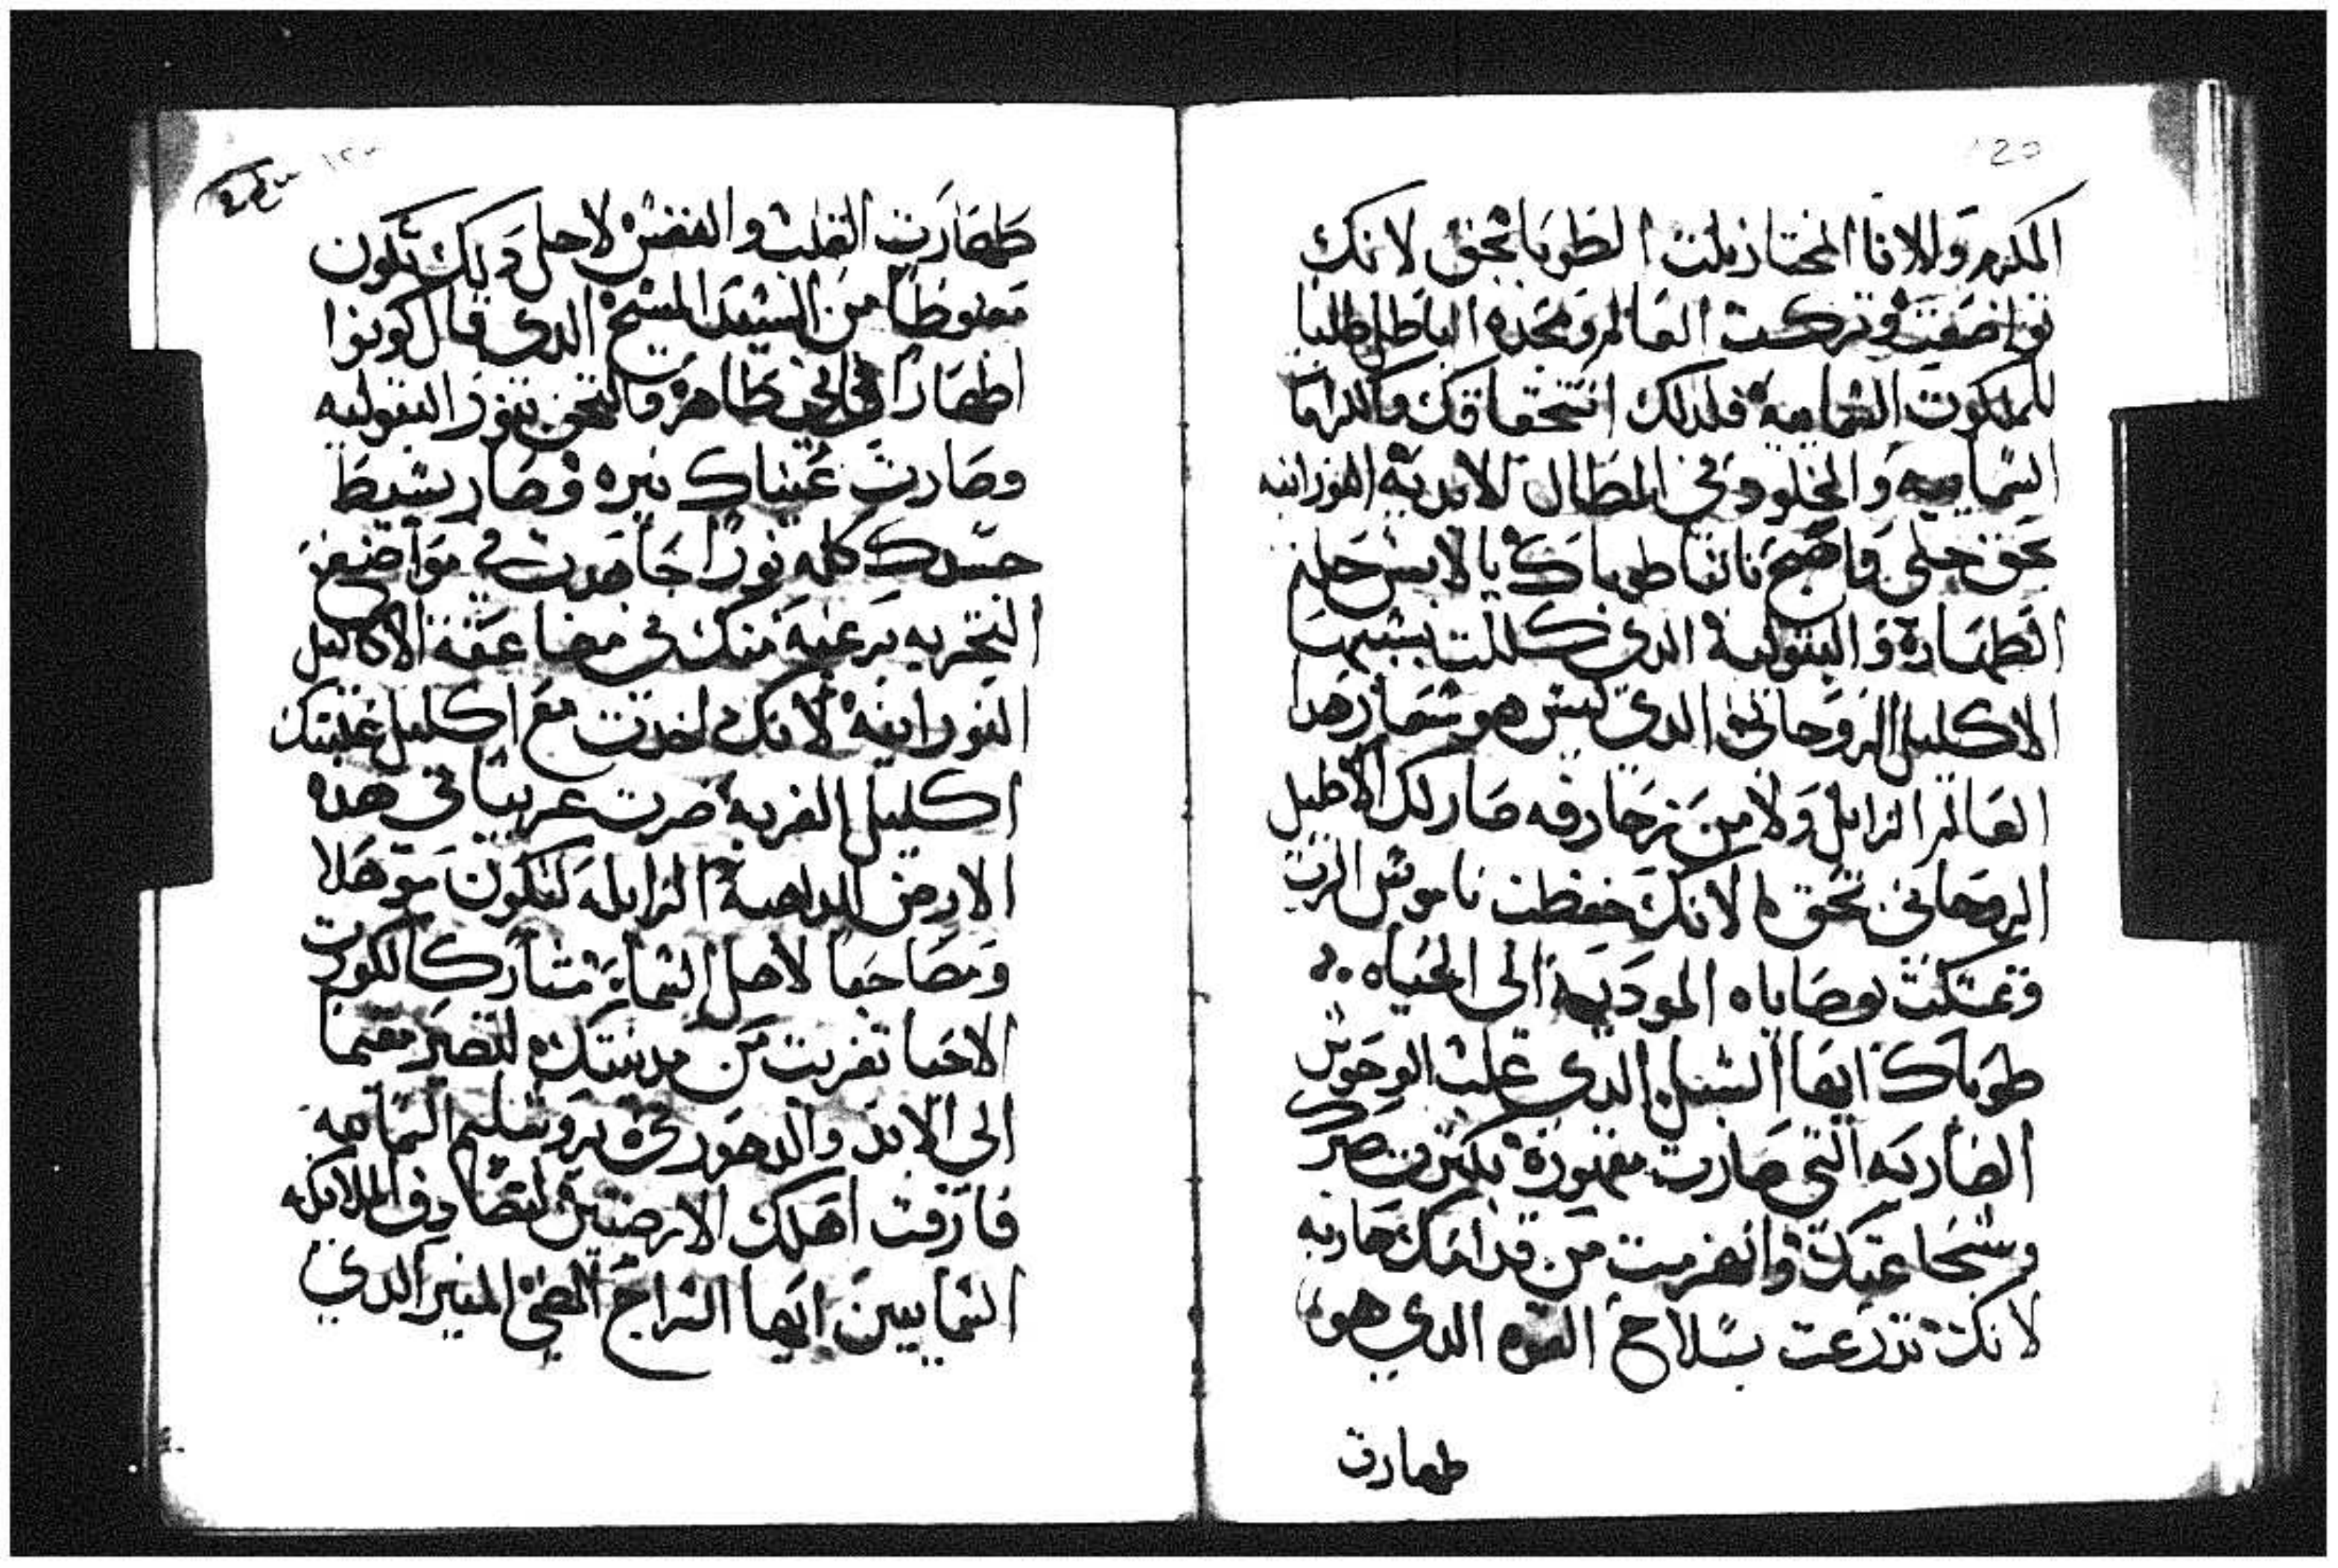 المكرم وللانا المختار نلت الطوبا بحق لانك
تواضعت وتركت العالم ومجده الباطل طلبا
للملكوت السماويه فلدلك انتحقاقك والكراما
السماويه والخلود في المطال الابديه النورانيه
بحق جلي واضح تانيا طوباك يا لابس حلة
الطهارة والبتولية الدي كللت بسببهما
الاكليل الروحاني الدي ليس هو شعار هدا
العالم الزايل ولا من زخارفه صار لك الاكليل
الروحاني بحق لانك حفظت ناموس الرب
وتمسكت بوصاياه الموديه الى الحياه
طوباك ايها الشبل الدي غلب الوحوش
الضاريه التي صارت مقهورة بكثرت صبرك
وشجاعتك وانهزمت من قدامك هاربه
لانك تدرعت بسلاح القوه الدي هو
طهارت
طهارت القلب والنفس لاجل دلك تكون
مغبوطا من السيد المسيح الدي قال كونوا
اطهارا فاني طاهر والتحف بنور البتوليه
وصارت عيناك نيره وصار بسيط
جسدك كله نورا جاهدت في مواضع
التجربه برغبة منك في مضاعفة الاكاليل
النورانية لانك اخدت مع اكليل غلبتك
اكليل الغربة صرت غريبا في هده
الارض الداهبة الزايلة لتكون متوهلا
ومصاحبا لاهل السماء مشاركا لكورت
الاحيا تغربت من مدينتك لتصير مقيما
الى الابد والدهور في يروشليم السماويه
فارقت اهلك الارضيين لتصادف الملايكه
السماييين ايها السراج المضي المنير الدي